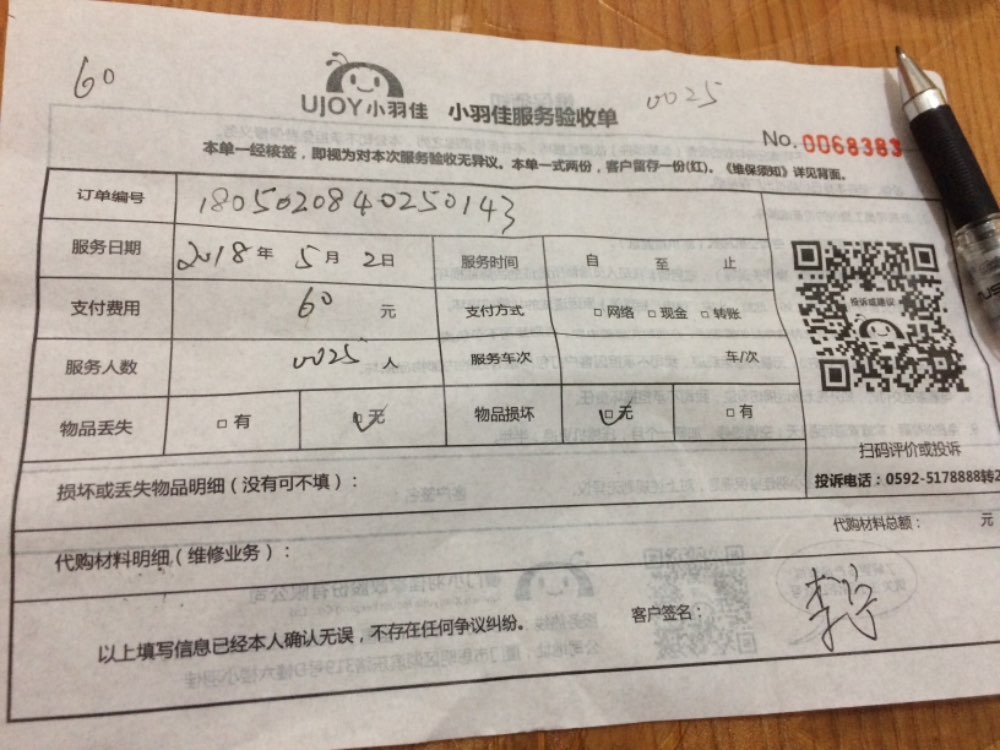 60
UJOY小羽佳 小羽佳服务验收单
0025
No. 0068383
本单一经核签，即视为对本次服务验收无异议。本单一式两份，客户留存一份(红)。《维保须知》详见背面。
订单编号 1805020840250143
服务日期 2018年 5月 2日 服务时间 自 至 止
支付费用 60 元 支付方式 □网络 □现金 □转账
服务人数 0025 人 服务车次 车/次
物品丢失 □有 □无 物品损坏 □无 □有
投诉或建议
扫码评价或投诉
投诉电话：0592-5178888转2
损坏或丢失物品明细（没有可不填）：
代购材料明细（维修业务）：
代购材料总额： 元
以上填写信息已经本人确认无误，不存在任何争议纠纷。
客户签名：